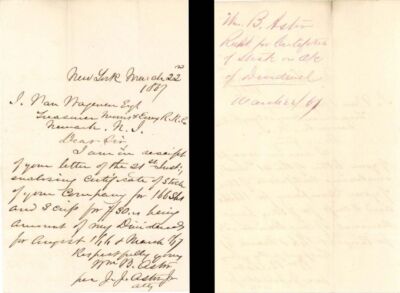 New York March 22nd
1867
J. Van Wagenen Esqr
Treasurer Morris & Essex R.R. Co
Newark. N. J.
Dear Sir
I am in receipt
of your letter of the 21st Inst;
enclosing Certificate of Stock
of your Company for 166 Shs
and Scrip for $30. being
amount of my Dividends
for August 1/66 & March 1/67
Respectfully yours
Wm B. Astor
per J. J. Astor Jr
atty
Wm. B. Astor
Rcpt for Certificate
of Stock on a/c
of Dividend
March 1/67